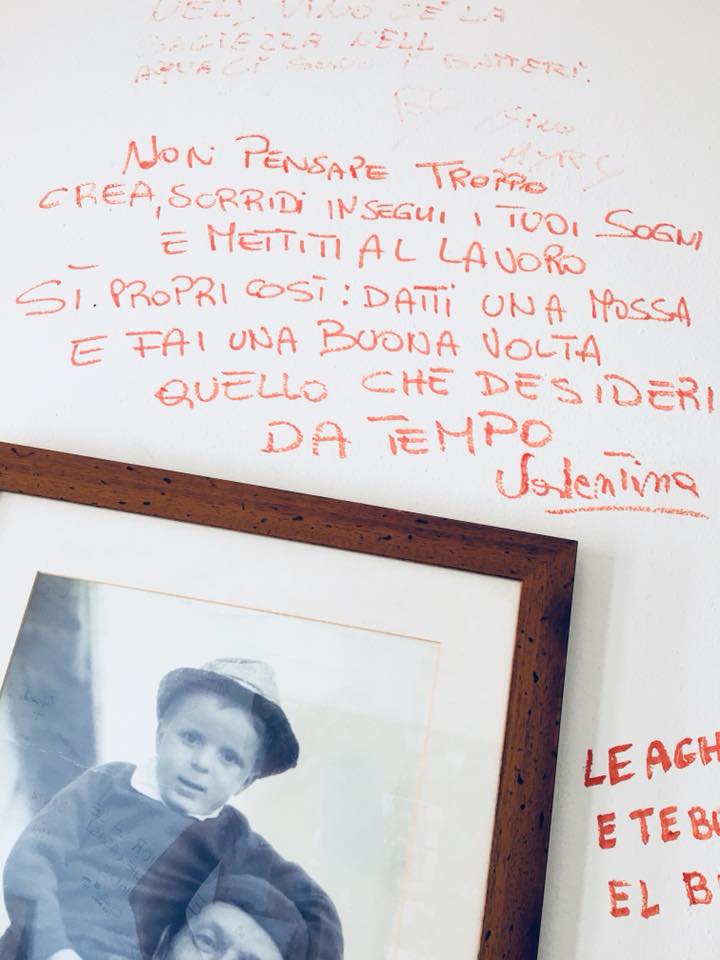 NELL VINO C'È LA
SAGIEZZA NELL
AQUA CI SONO I BATTERI.
NON PENSARE TROPPO
CREA, SORRIDI INSEGUI I TUOI SOGNI
E METTITI AL LAVORO
SÌ PROPRI COSÌ: DATTI UNA MOSSA
E FAI UNA BUONA VOLTA
QUELLO CHE DESIDERI
DA TEMPO
Valentina
LE AGH
E TE BE
EL B